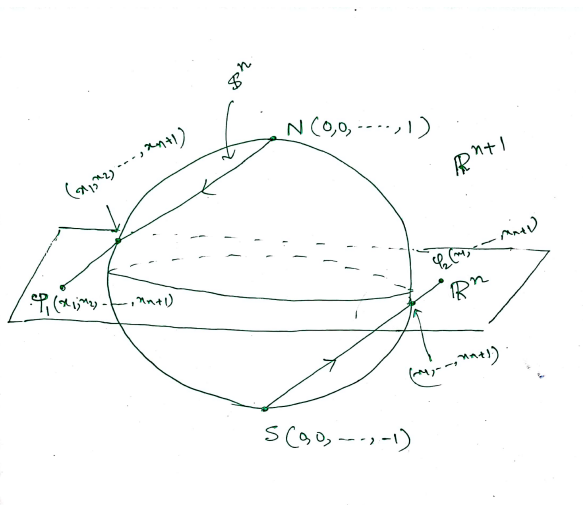 Sⁿ
N(0,0,-----,1)
(x₁,x₂,---,xn+1)
ℝⁿ⁺¹
φ₂(x₁,---,xn+1)
ℝⁿ
φ₁(x₁,x₂,---,xn+1)
(x₁,--,xn+1)
S(0,0,---,-1)